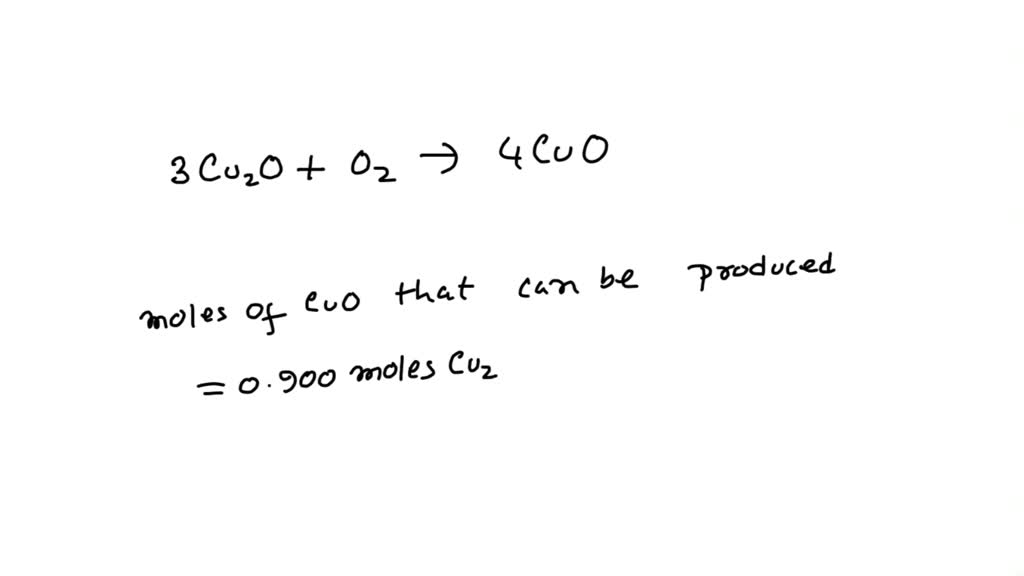 3Cu₂O + O₂ → 4CuO
moles of CuO that can be produced
= 0.900 moles Cu₂